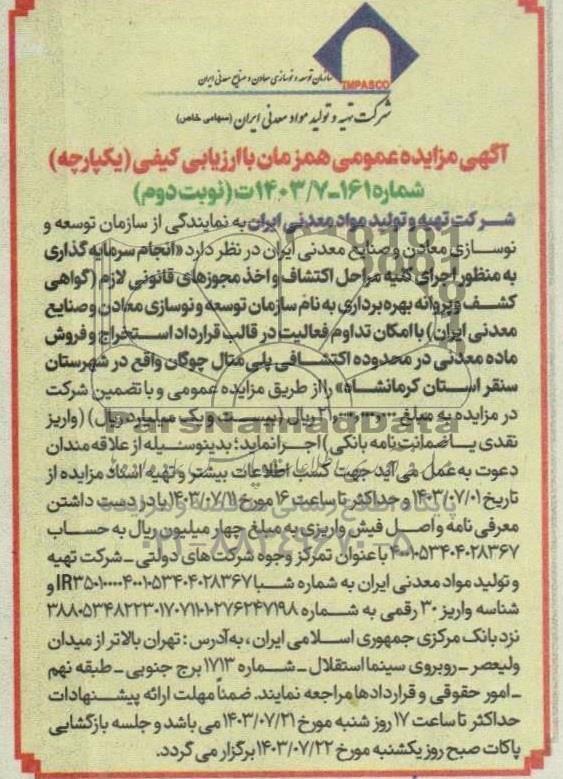 IMPASCO
سازمان توسعه و نوسازی معادن و صنایع معدنی ایران
شرکت تهیه و تولید مواد معدنی ایران (سهامی خاص)
آگهی مزایده عمومی همزمان با ارزیابی کیفی (یکپارچه)
شماره ۱۶۱-۱۴۰۳/۷ت (نوبت دوم)
شرکت تهیه و تولید مواد معدنی ایران به نمایندگی از سازمان توسعه و
نوسازی معادن و صنایع معدنی ایران در نظر دارد «انجام سرمایه گذاری
به منظور اجرای کلیه مراحل اکتشاف و اخذ مجوزهای قانونی لازم (گواهی
کشف و پروانه بهره برداری به نام سازمان توسعه و نوسازی معادن و صنایع
معدنی ایران) با امکان تداوم فعالیت در قالب قرارداد استخراج و فروش
ماده معدنی در محدوده اکتشافی پلی متال چوگان واقع در شهرستان
سنقر استان کرمانشاه» را از طریق مزایده عمومی و با تضمین شرکت
در مزایده به مبلغ ۲۱.۰۰۰.۰۰۰.۰۰۰ ریال (بیست و یک میلیارد ریال) (واریز
نقدی یا ضمانت نامه بانکی) اجرا نماید؛ بدینوسیله از علاقه مندان
دعوت به عمل می آید جهت کسب اطلاعات بیشتر و تهیه اسناد مزایده از
تاریخ ۱۴۰۳/۰۷/۰۱ و حداکثر تا ساعت ۱۶ مورخ ۱۴۰۳/۰۷/۱۱ با در دست داشتن
معرفی نامه و اصل فیش واریزی به مبلغ چهار میلیون ریال به حساب
۴۰۰۱۰۵۳۴۰۴۰۲۸۳۶۷ با عنوان تمرکز وجوه شرکت های دولتی ـ شرکت تهیه
و تولید مواد معدنی ایران به شماره شبا IR۳۵۰۱۰۰۰۰۴۰۰۱۰۵۳۴۰۴۰۲۸۳۶۷ و
شناسه واریز ۳۰ رقمی به شماره ۳۸۸۰۵۳۴۸۲۲۳۰۱۷۰۷۱۱۰۱۰۲۷۶۲۴۷۱۹۸
نزد بانک مرکزی جمهوری اسلامی ایران، به آدرس: تهران بالاتر از میدان
ولیعصر ـ روبروی سینما استقلال ـ شماره ۱۷۱۳ برج جنوبی ـ طبقه نهم
ـ امور حقوقی و قراردادها مراجعه نمایند. ضمناً مهلت ارائه پیشنهادات
حداکثر تا ساعت ۱۷ روز شنبه مورخ ۱۴۰۳/۰۷/۲۱ می باشد و جلسه بازگشایی
پاکات صبح روز یکشنبه مورخ ۱۴۰۳/۰۷/۲۲ برگزار می گردد.
ParsNamadData
پایگاه اطلاع رسانی مناقصه و مزایده
۰۲۱-۸۸۳۴۹۶۷۰-۵